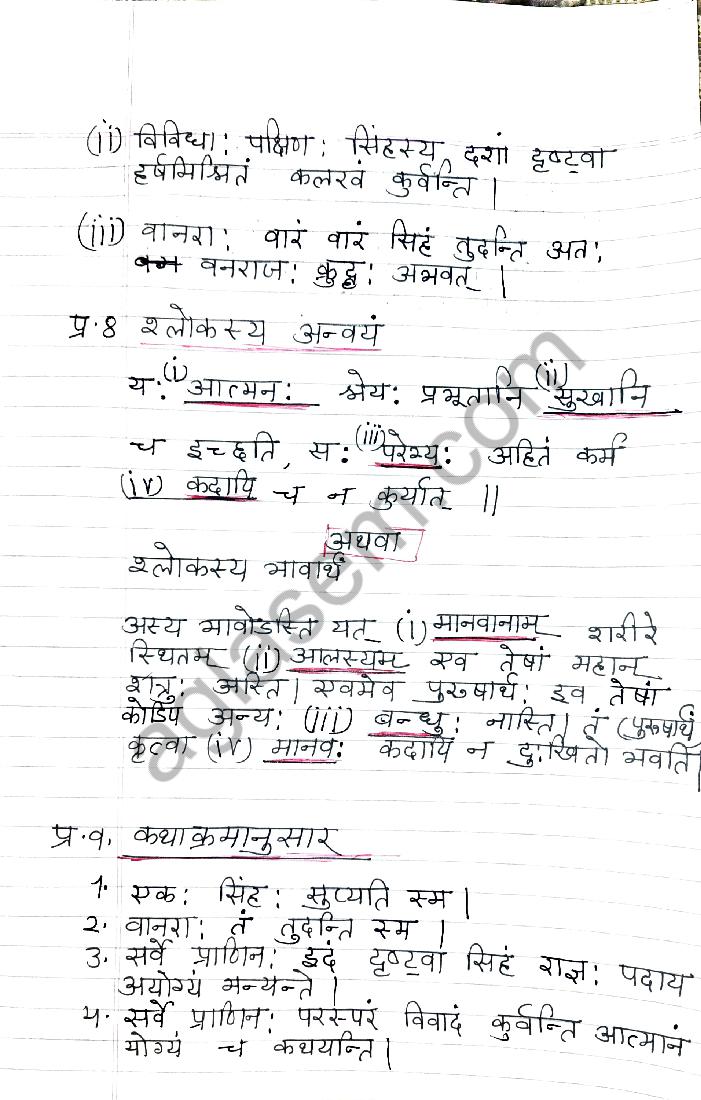 (ii) विविधा: पक्षिण: सिंहस्य दशां दृष्ट्वा
हर्षमिश्रितं कलरवं कुर्वन्ति |
(iii) वानरा: वारं वारं सिहं तुदन्ति अत:
वनराज: क्रुद्ध: अभवत् |
प्र.8 श्लोकस्य अन्वयं
य: (i) आत्मन: श्रेय: प्रभूतानि (ii) सुखानि
च इच्छति, स: (iii) परेभ्य: अहितं कर्म
(iv) कदापि च न कुर्यात् ||
अथवा
श्लोकस्य भावार्थं
अस्य भावोडस्ति यत् (i) मानवानाम् शरीरे
स्थितम् (ii) आलस्यम् एव तेषां महान्
शत्रु: अस्ति | एवमेव पुरुषार्थ: इव तेषां
कोडपि अन्य: (iii) बन्धु: नास्ति | तं (पुरुषार्थं
कृत्वा (iv) मानव: कदापि न दु:खितो भवति |
प्र.9. कथाक्रमानुसार
1. एक: सिंह: सुप्यति स्म |
2. वानरा: तं तुदन्ति स्म |
3. सर्वे प्राणिन: इदं दृष्ट्वा सिहं राज्ञ: पदाय
अयोग्यं मन्यन्ते |
4. सर्वे प्राणिन: परस्परं विवादं कुर्वन्ति आत्मानं
योग्यं च कथयन्ति |
aglasem.com